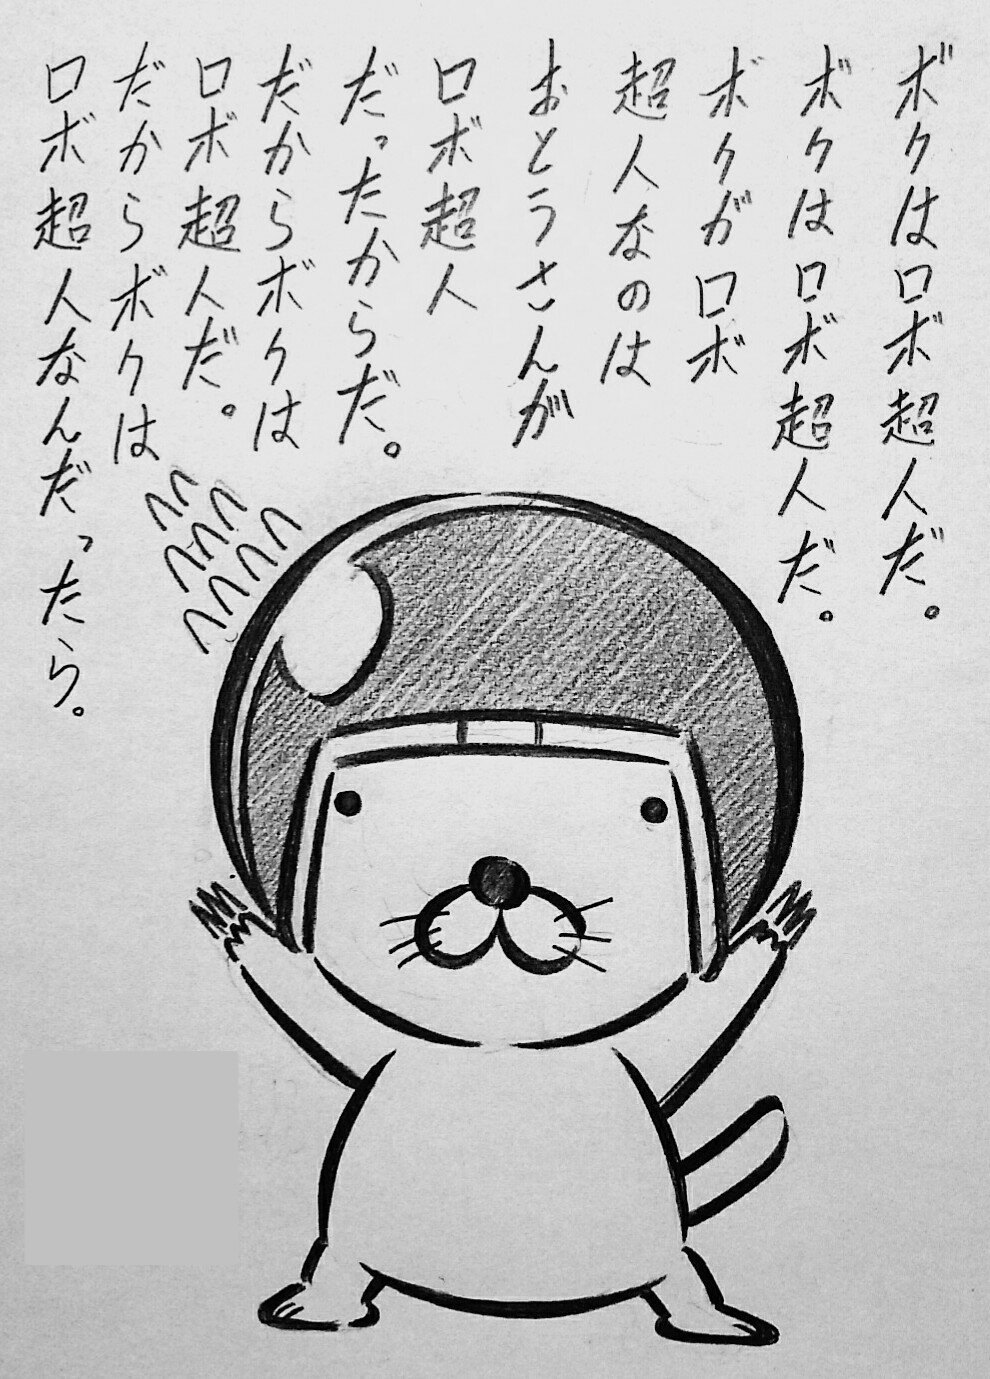 ボクはロボ超人だ。
ボクはロボ超人だ。
ボクがロボ
超人なのは
おとうさんが
ロボ超人
だったからだ。
だからボクは
ロボ超人だ。
だからボクは
ロボ超人なんだったら。